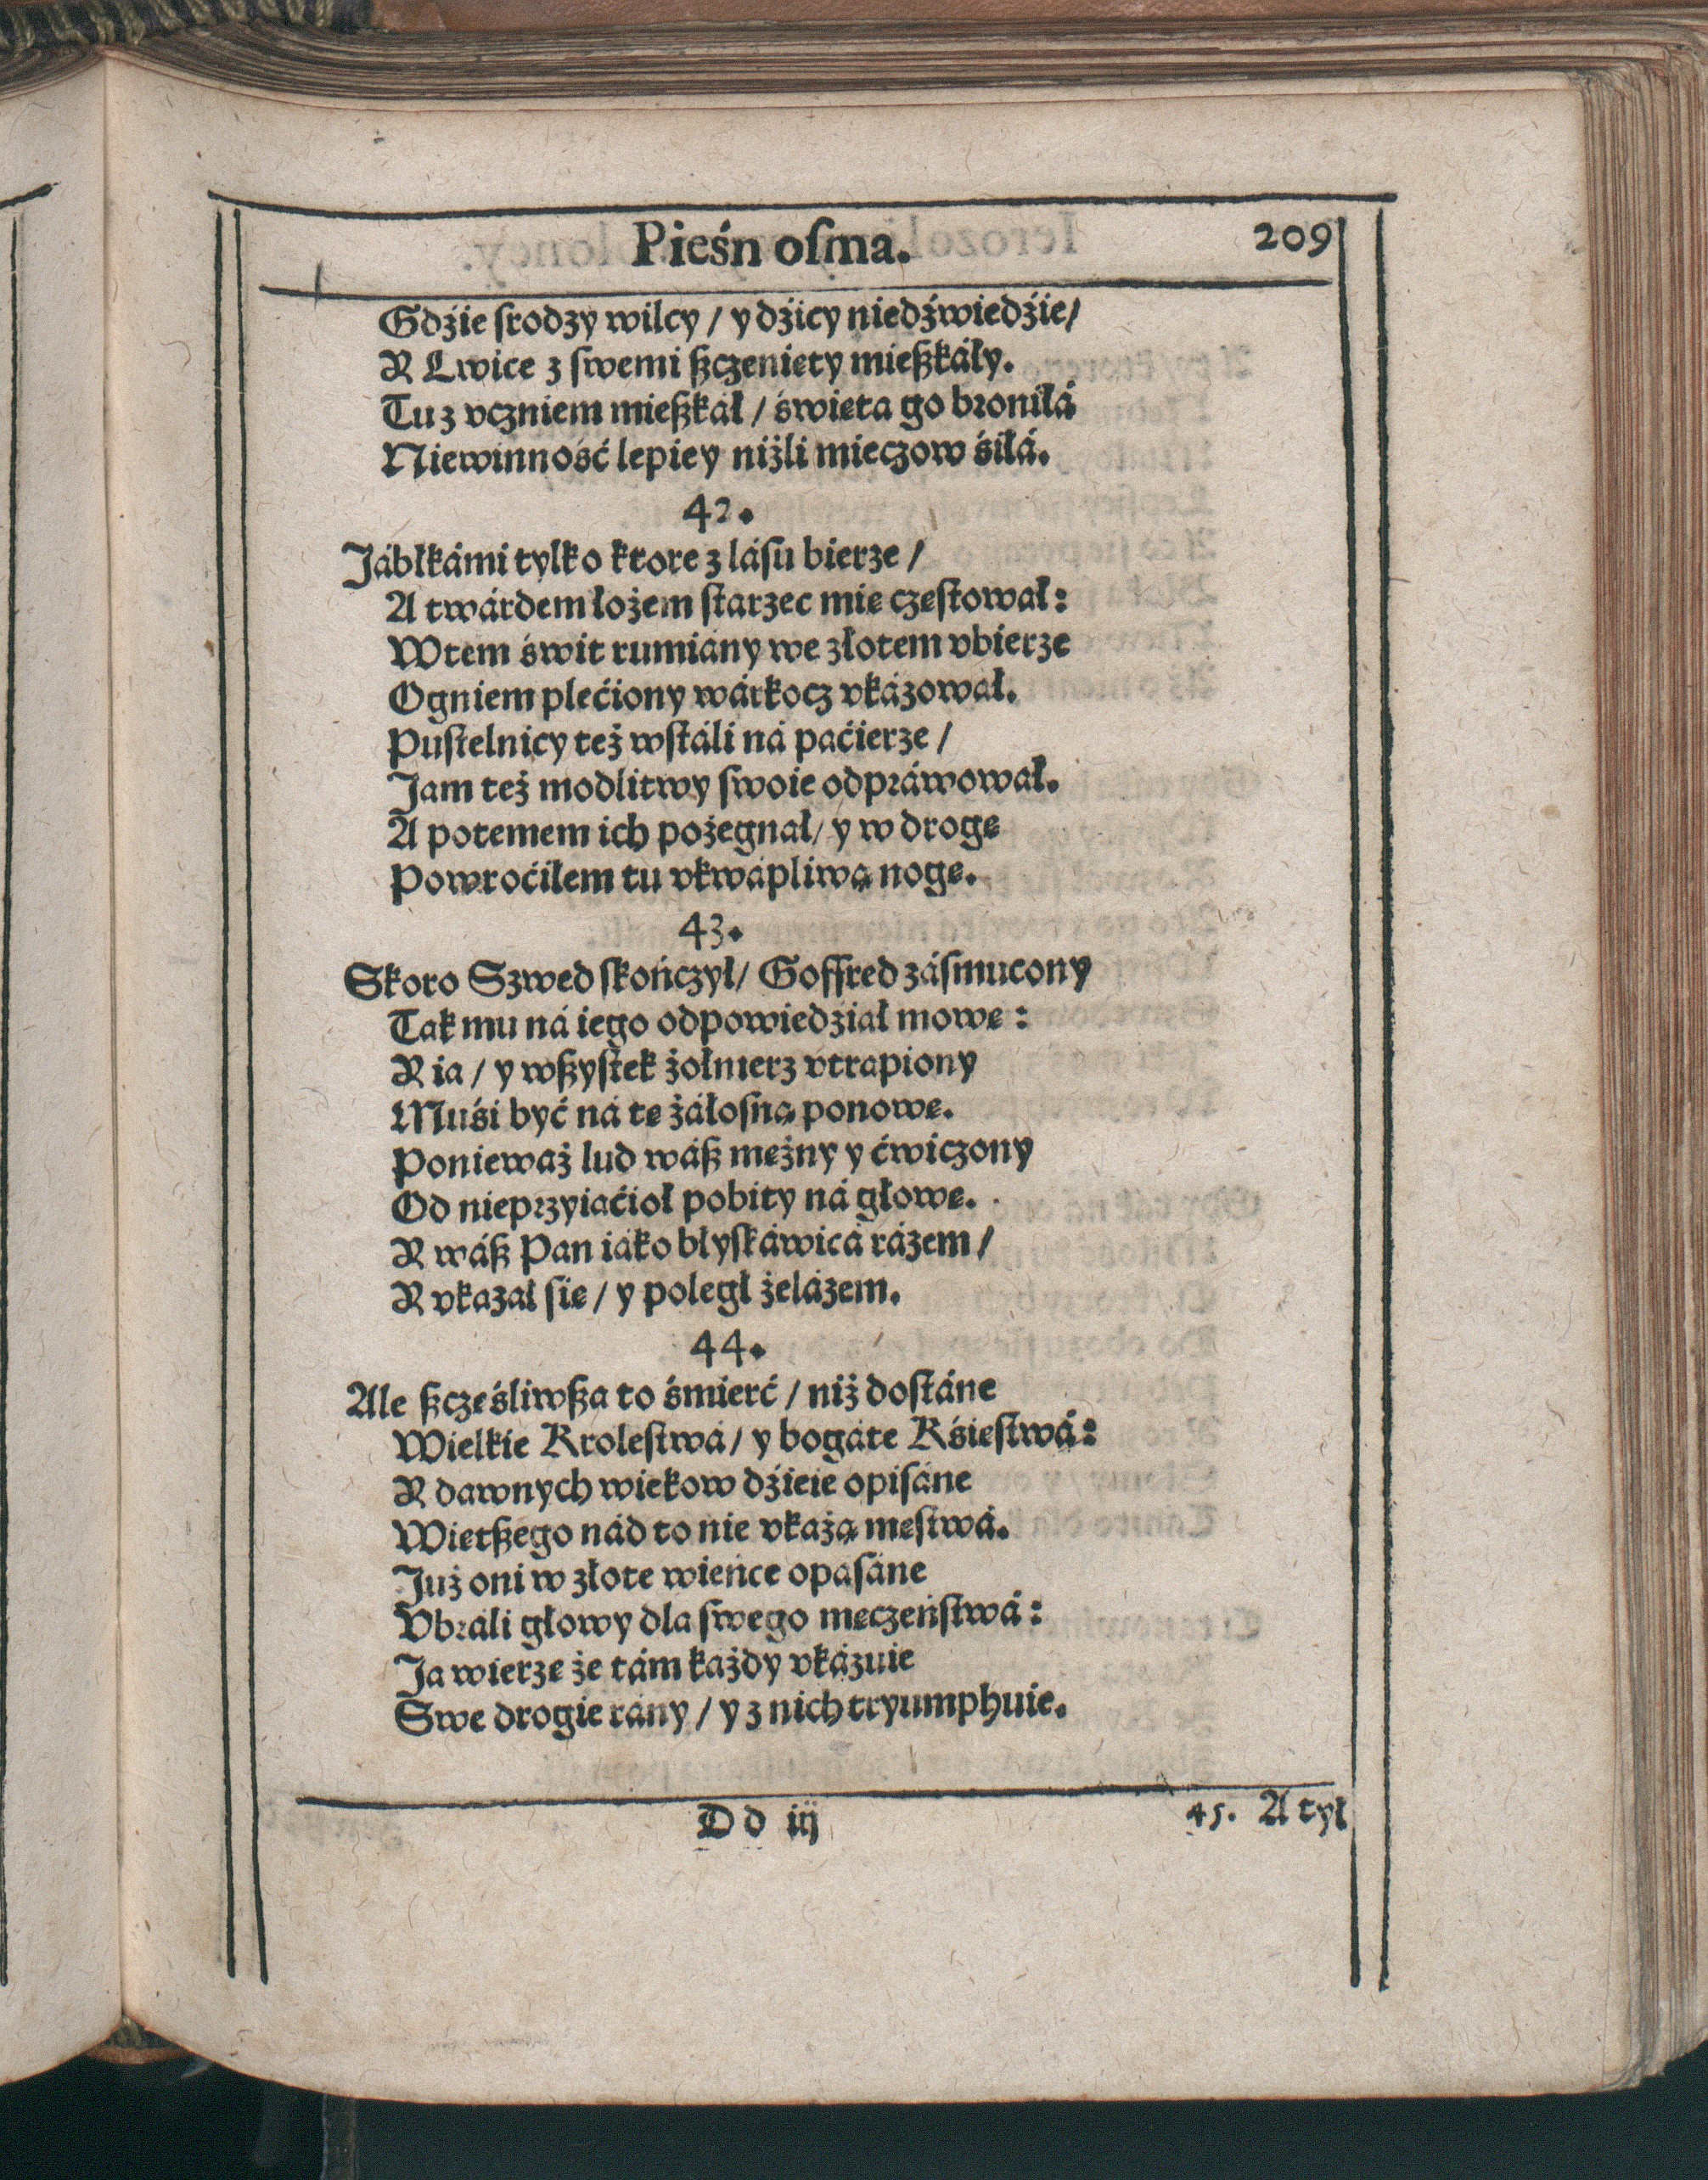 Pieśń oſma.
209
Gdźie ſrodzy wilcy / y dźicy niedźwiedźie /
Y Lwice z ſwemi ßczenięty mießkáły.
Tu z vczniem mießkał / święta go broniłá
Niewinność lepiey niżli mieczow śiłá.
42.
Jábłkámi tylko ktore z láſu bierze /
A twárdem łożem ſtarzec mię częſtował:
Wtem świt rumiány we złotem vbierze
Ogniem plećiony wárkocz vkázował.
Puſtelnicy też wſtáli ná paćierze /
Jam też modlitwy ſwoie odpráwował.
A potemem ich pożegnał / y w drogę
Powroćiłem tu vkwápliwą nogę.
43.
Skoro Szwed ſkończył / Goffred záſmucony
Tak mu ná iego odpowiedział mowę:
Y ia / y wßyſtek żołnierz vtrapiony
Muśi być ná tę żáłoſną ponowę.
Ponieważ lud wáß mężny y ćwiczony
Od nieprzyiaćioł pobity ná głowę.
Y wáß Pan iáko błyſkáwicá rázem /
Y vkazał ſię / y poległ żelázem.
44.
Ale ßczęśliwßa to śmierć / niż doſtáne
Wielkie Kroleſtwá / y bogáte Kśięſtwá:
Y dawnych wiekow dźieie opiſáne
Więtßego nád to nie vkażą męſtwá.
Już oni w złote wieńce opaſáne
Vbráli głowy dla ſwego męczeńſtwá:
Ja wierzę że tám każdy vkázuie
Swe drogie rány / y z nich tryumphuie.
D d iij
45. A tył